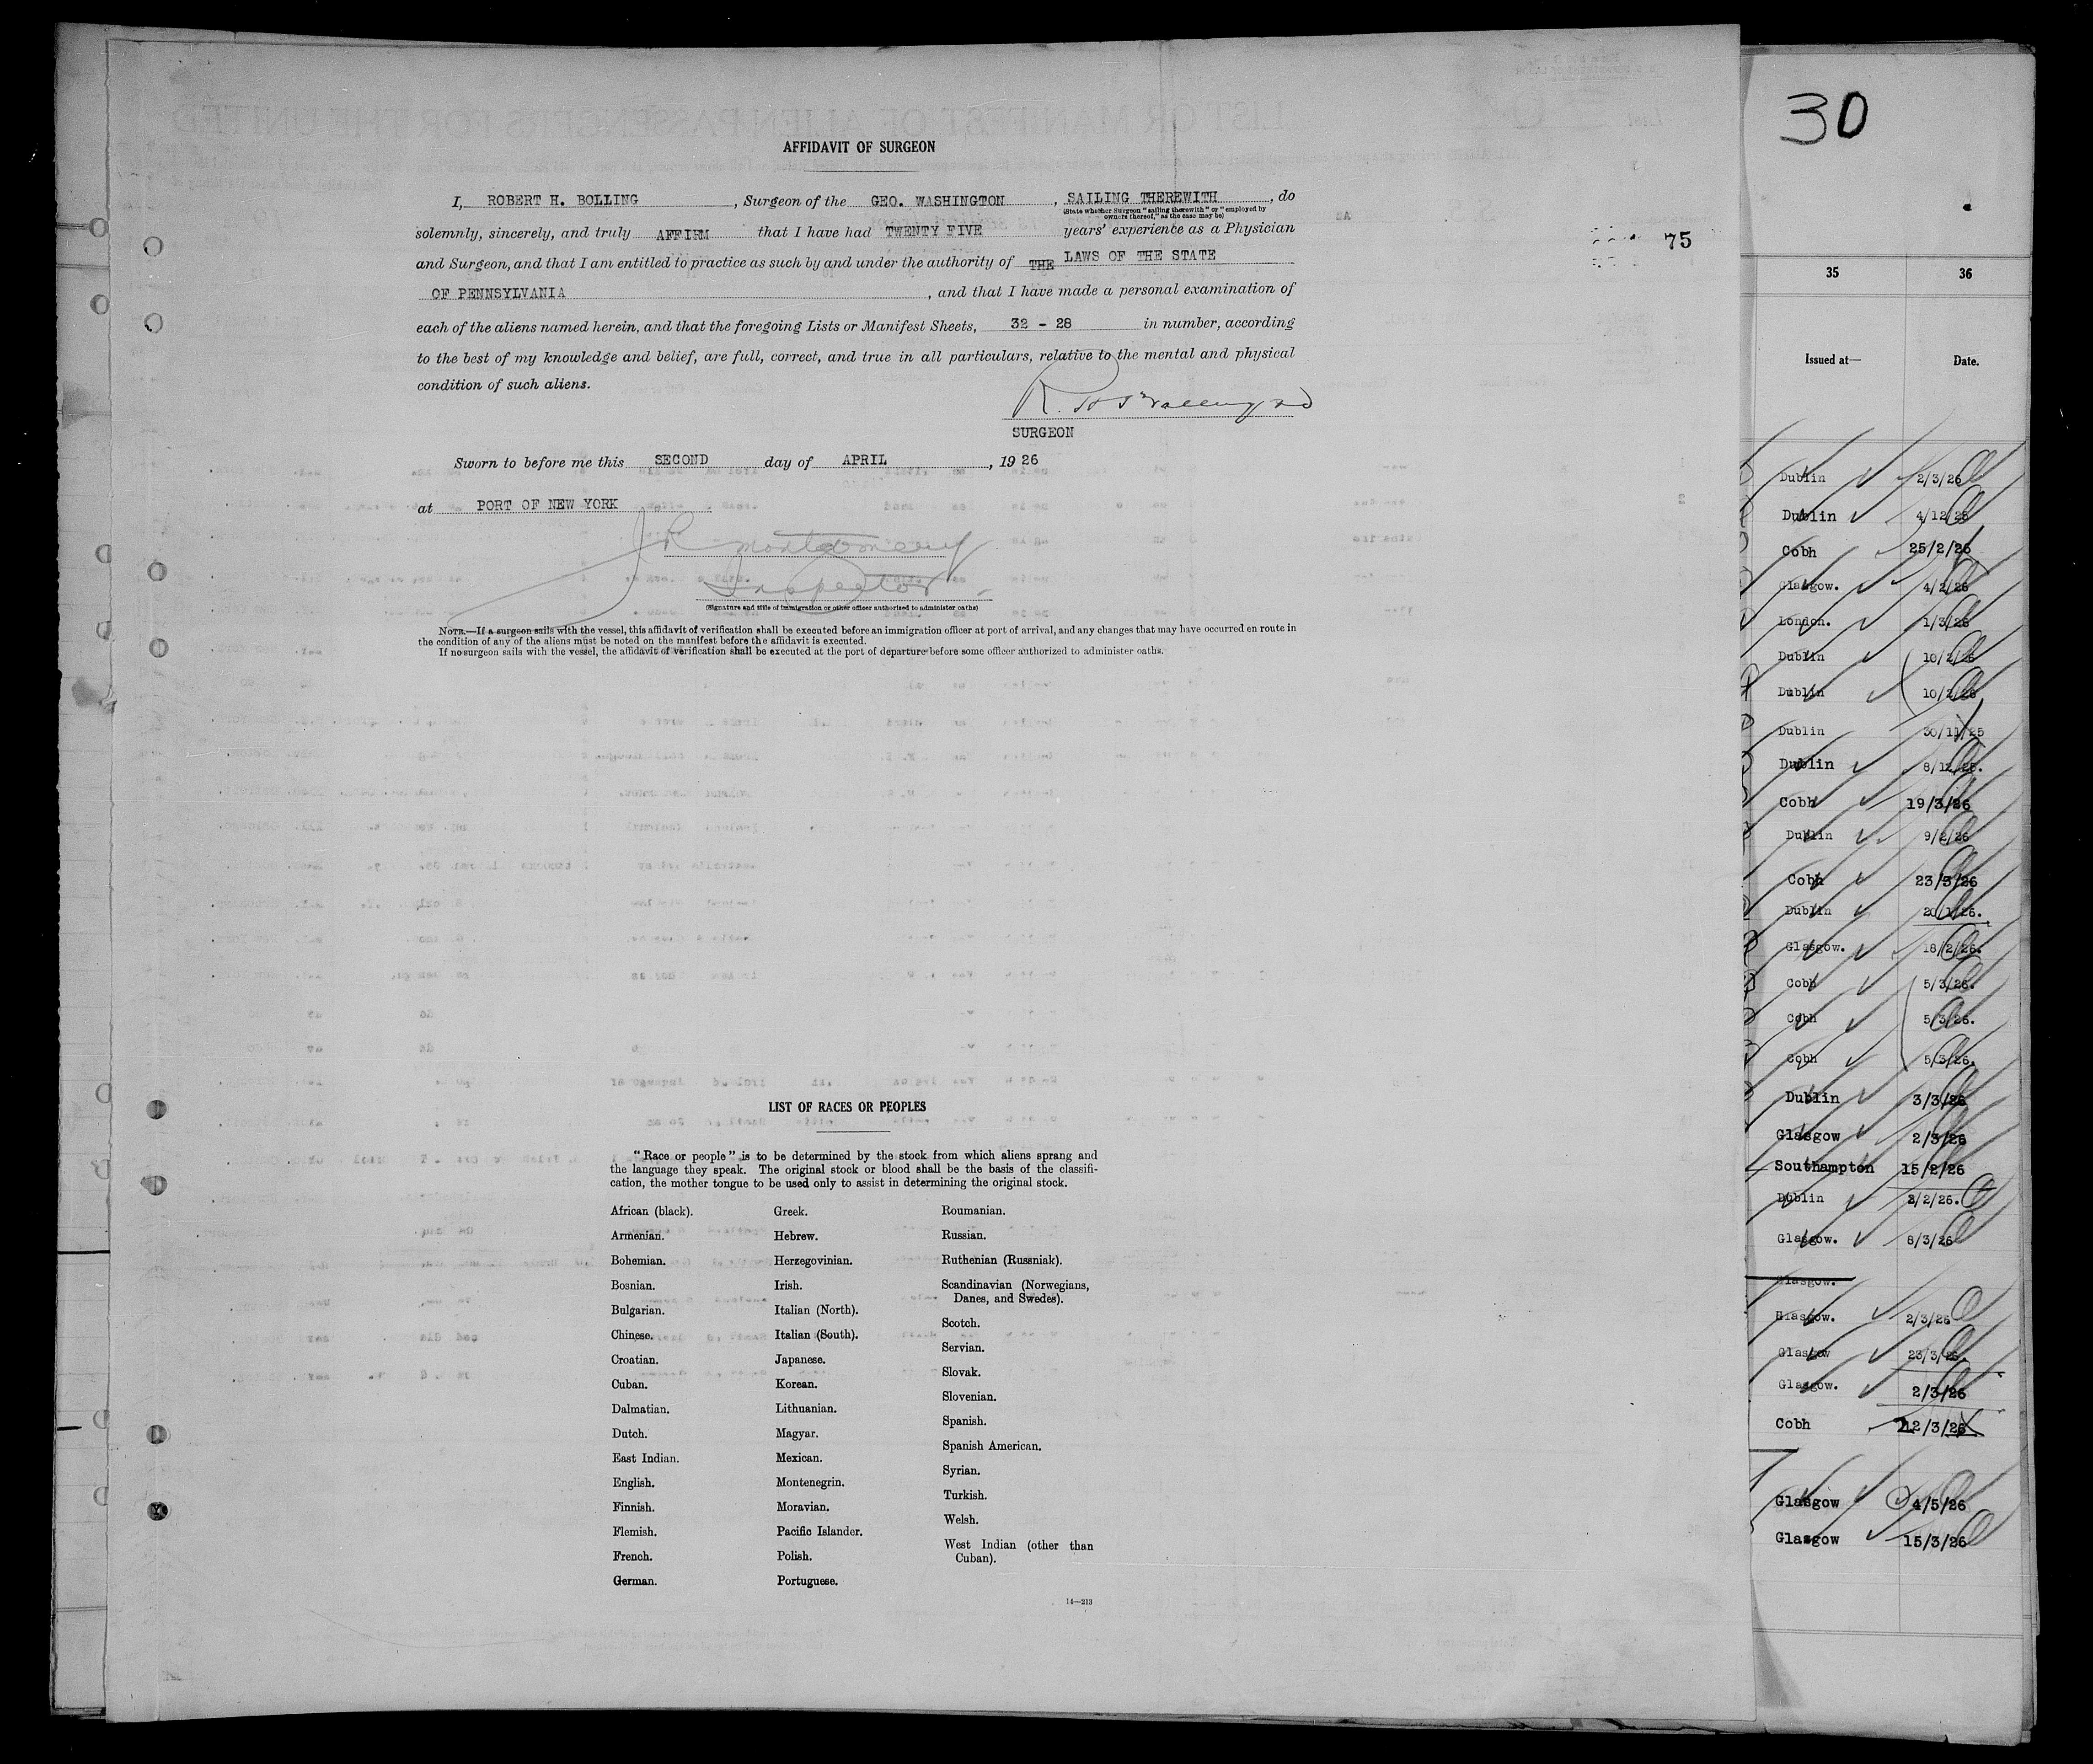 AFFIDAVIT OF SURGEON
I, ROBERT H. BOLLING, Surgeon of the GEO. WASHINGTON, SAILING THEREWITH, do
(State whether Surgeon "sailing therewith" or "employed by
owners thereof," as the case may be)
solemnly, sincerely, and truly AFFIRM that I have had TWENTY FIVE years' experience as a Physician
and Surgeon, and that I am entitled to practice as such by and under the authority of THE LAWS OF THE STATE
OF PENNSYLVANIA, and that I have made a personal examination of
each of the aliens named herein, and that the foregoing Lists or Manifest Sheets, 32 - 28 in number, according
to the best of my knowledge and belief, are full, correct, and true in all particulars, relative to the mental and physical
condition of such aliens.
SURGEON
Sworn to before me this SECOND day of APRIL, 1926
at PORT OF NEW YORK
J R Montgomery
Inspector
(Signature and title of immigration or other officer authorized to administer oaths)
NOTE.—If a surgeon sails with the vessel, this affidavit of verification shall be executed before an immigration officer at port of arrival, and any changes that may have occurred en route in
the condition of any of the aliens must be noted on the manifest before the affidavit is executed.
If no surgeon sails with the vessel, the affidavit of verification shall be executed at the port of departure before some officer authorized to administer oaths.
LIST OF RACES OR PEOPLES
"Race or people" is to be determined by the stock from which aliens sprang and
the language they speak. The original stock or blood shall be the basis of the classifi-
cation, the mother tongue to be used only to assist in determining the original stock.
African (black).
Armenian.
Bohemian.
Bosnian.
Bulgarian.
Chinese.
Croatian.
Cuban.
Dalmatian.
Dutch.
East Indian.
English.
Finnish.
Flemish.
French.
German.
Greek.
Hebrew.
Herzegovinian.
Irish.
Italian (North).
Italian (South).
Japanese.
Korean.
Lithuanian.
Magyar.
Mexican.
Montenegrin.
Moravian.
Pacific Islander.
Polish.
Portuguese.
Roumanian.
Russian.
Ruthenian (Russniak).
Scandinavian (Norwegians,
Danes, and Swedes).
Scotch.
Servian.
Slovak.
Slovenian.
Spanish.
Spanish American.
Syrian.
Turkish.
Welsh.
West Indian (other than
Cuban).
14—213
75
30
35 36
Issued at— Date.
Dublin 2/3/26
Dublin 4/12/25
Cobh 25/2/26
Glasgow. 4/2/26
London. 1/3/26
Dublin 10/2/26
Dublin 10/2/26
Dublin 30/11/25
Dublin 8/12/25.
Cobh 19/3/26
Dublin 9/2/26
Cobh 23/3/26
Dublin 20/1/26.
Glasgow. 18/2/26.
Cobh 5/3/26.
Cobh 5/3/26.
Cobh 5/3/26.
Dublin 3/3/26
Glasgow 2/3/26
Southampton 15/2/26
Dublin 2/26.
Glasgow. 8/3/26
Glasgow.
Glasgow. 2/3/26
Glasgow 23/3/26.
Glasgow. 2/3/26
Cobh 12/3/26
Glasgow 4/5/26
Glasgow 15/3/26